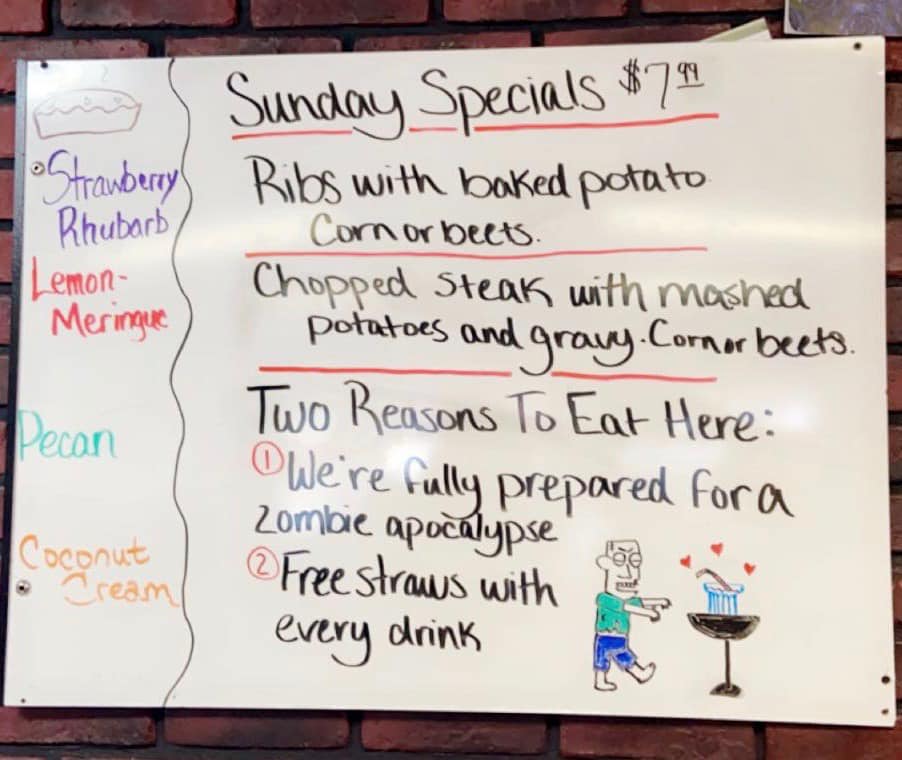 Strawberry
Rhubarb
Lemon-
Meringue
Pecan
Coconut
Cream
Sunday Specials $7.99
Ribs with baked potato
Corn or beets.
Chopped steak with mashed
potatoes and gravy. Corn or beets.
Two Reasons To Eat Here:
① We're fully prepared for a
zombie apocalypse
② Free straws with
every drink